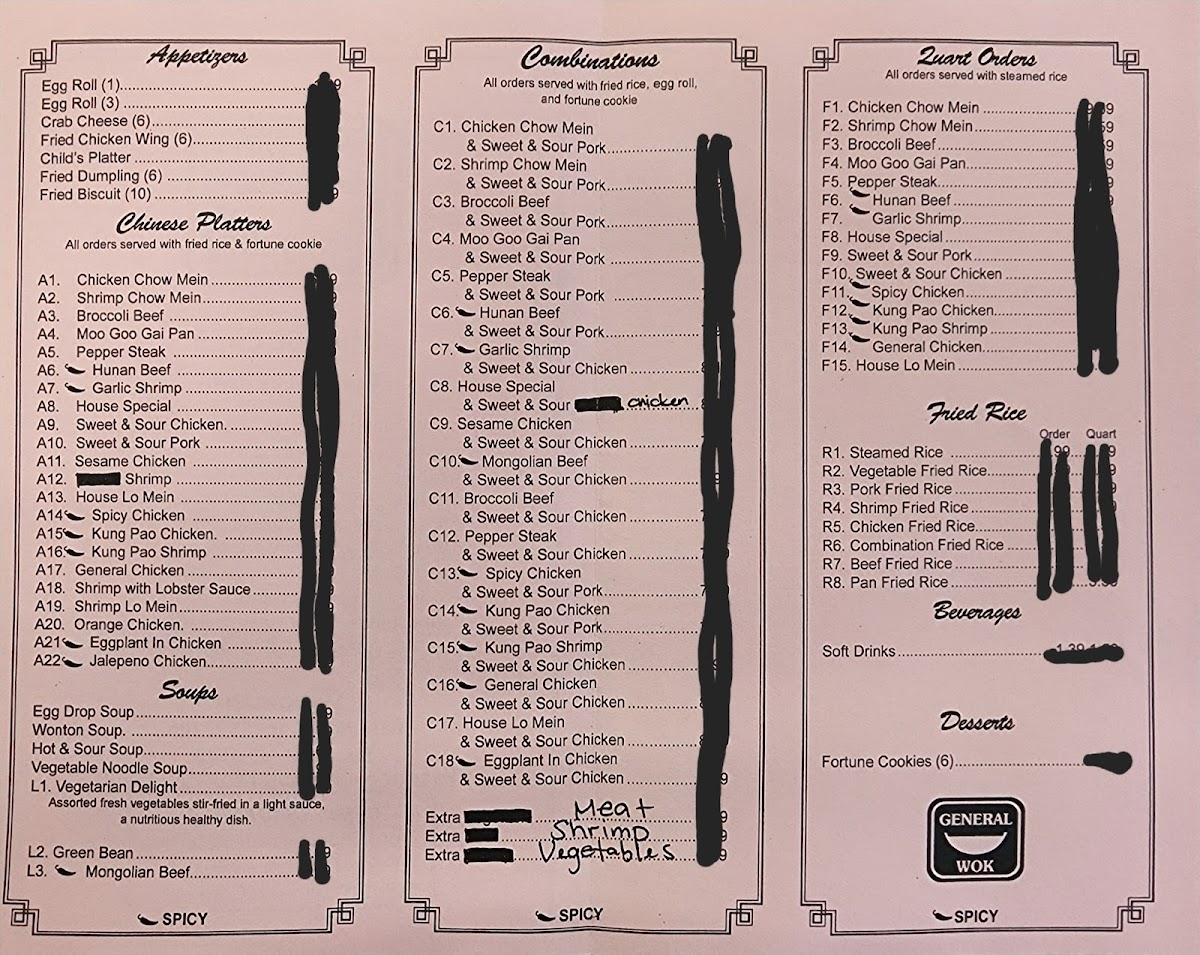 Appetizers
Egg Roll (1)
Egg Roll (3)
Crab Cheese (6)
Fried Chicken Wing (6)
Child's Platter
Fried Dumpling (6)
Fried Biscuit (10)
Chinese Platters
All orders served with fried rice & fortune cookie
A1. Chicken Chow Mein
A2. Shrimp Chow Mein
A3. Broccoli Beef
A4. Moo Goo Gai Pan
A5. Pepper Steak
A6. Hunan Beef
A7. Garlic Shrimp
A8. House Special
A9. Sweet & Sour Chicken.
A10. Sweet & Sour Pork
A11. Sesame Chicken
A12. Shrimp
A13. House Lo Mein
A14. Spicy Chicken
A15. Kung Pao Chicken.
A16. Kung Pao Shrimp
A17. General Chicken
A18. Shrimp with Lobster Sauce
A19. Shrimp Lo Mein
A20. Orange Chicken.
A21. Eggplant In Chicken
A22. Jalepeno Chicken
Soups
Egg Drop Soup
Wonton Soup.
Hot & Sour Soup
Vegetable Noodle Soup
L1. Vegetarian Delight
Assorted fresh vegetables stir-fried in a light sauce,
a nutritious healthy dish.
L2. Green Bean
L3. Mongolian Beef
SPICY
Combinations
All orders served with fried rice, egg roll,
and fortune cookie
C1. Chicken Chow Mein
& Sweet & Sour Pork
C2. Shrimp Chow Mein
& Sweet & Sour Pork
C3. Broccoli Beef
& Sweet & Sour Pork
C4. Moo Goo Gai Pan
& Sweet & Sour Pork
C5. Pepper Steak
& Sweet & Sour Pork
C6. Hunan Beef
& Sweet & Sour Pork
C7. Garlic Shrimp
& Sweet & Sour Chicken
C8. House Special
& Sweet & Sour chicken
C9. Sesame Chicken
& Sweet & Sour Chicken
C10. Mongolian Beef
& Sweet & Sour Chicken
C11. Broccoli Beef
& Sweet & Sour Chicken
C12. Pepper Steak
& Sweet & Sour Chicken
C13. Spicy Chicken
& Sweet & Sour Pork
C14. Kung Pao Chicken
& Sweet & Sour Pork
C15. Kung Pao Shrimp
& Sweet & Sour Chicken
C16. General Chicken
& Sweet & Sour Chicken
C17. House Lo Mein
& Sweet & Sour Chicken
C18. Eggplant In Chicken
& Sweet & Sour Chicken
Extra Meat
Extra Shrimp
Extra Vegetables
SPICY
Quart Orders
All orders served with steamed rice
F1. Chicken Chow Mein
F2. Shrimp Chow Mein
F3. Broccoli Beef
F4. Moo Goo Gai Pan
F5. Pepper Steak
F6. Hunan Beef
F7. Garlic Shrimp
F8. House Special
F9. Sweet & Sour Pork
F10. Sweet & Sour Chicken
F11. Spicy Chicken
F12. Kung Pao Chicken
F13. Kung Pao Shrimp
F14. General Chicken
F15. House Lo Mein
Fried Rice
Order Quart
R1. Steamed Rice
R2. Vegetable Fried Rice
R3. Pork Fried Rice
R4. Shrimp Fried Rice
R5. Chicken Fried Rice
R6. Combination Fried Rice
R7. Beef Fried Rice
R8. Pan Fried Rice
Beverages
Soft Drinks
Desserts
Fortune Cookies (6)
GENERAL
WOK
SPICY